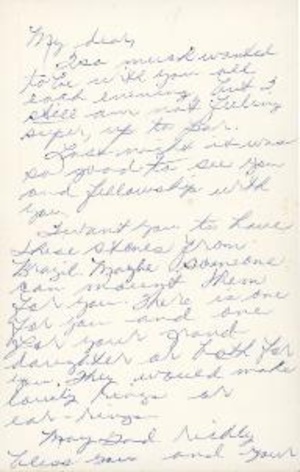 My dear,
I so much wanted
to be with you all
each evening, but I
still am not feeling
super, up to par.
Last night it was
so good to see you
and fellowship with
you.
I want you to have
these stones from
Brazil. Maybe someone
can mount them
for you. There is one
for you and one
for your grand-
daughter or both for
you. They would make
lovely rings or
ear-rings.
May God richly
bless you and your